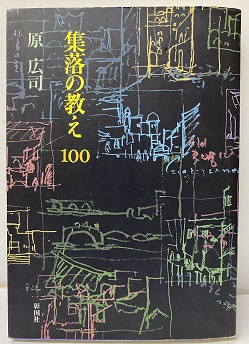 集落の教え
100
原 広司
彰国社